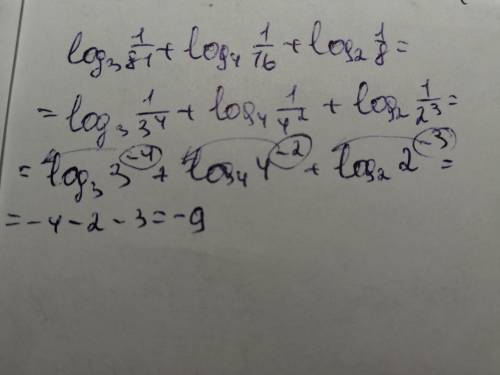 log₃ 1/81 + log₄ 1/16 + log₂ 1/8 =
= log₃ 1/3⁴ + log₄ 1/4² + log₂ 1/2³ =
= log₃ 3⁻⁴ + log₄ 4⁻² + log₂ 2⁻³ =
= -4 - 2 - 3 = -9